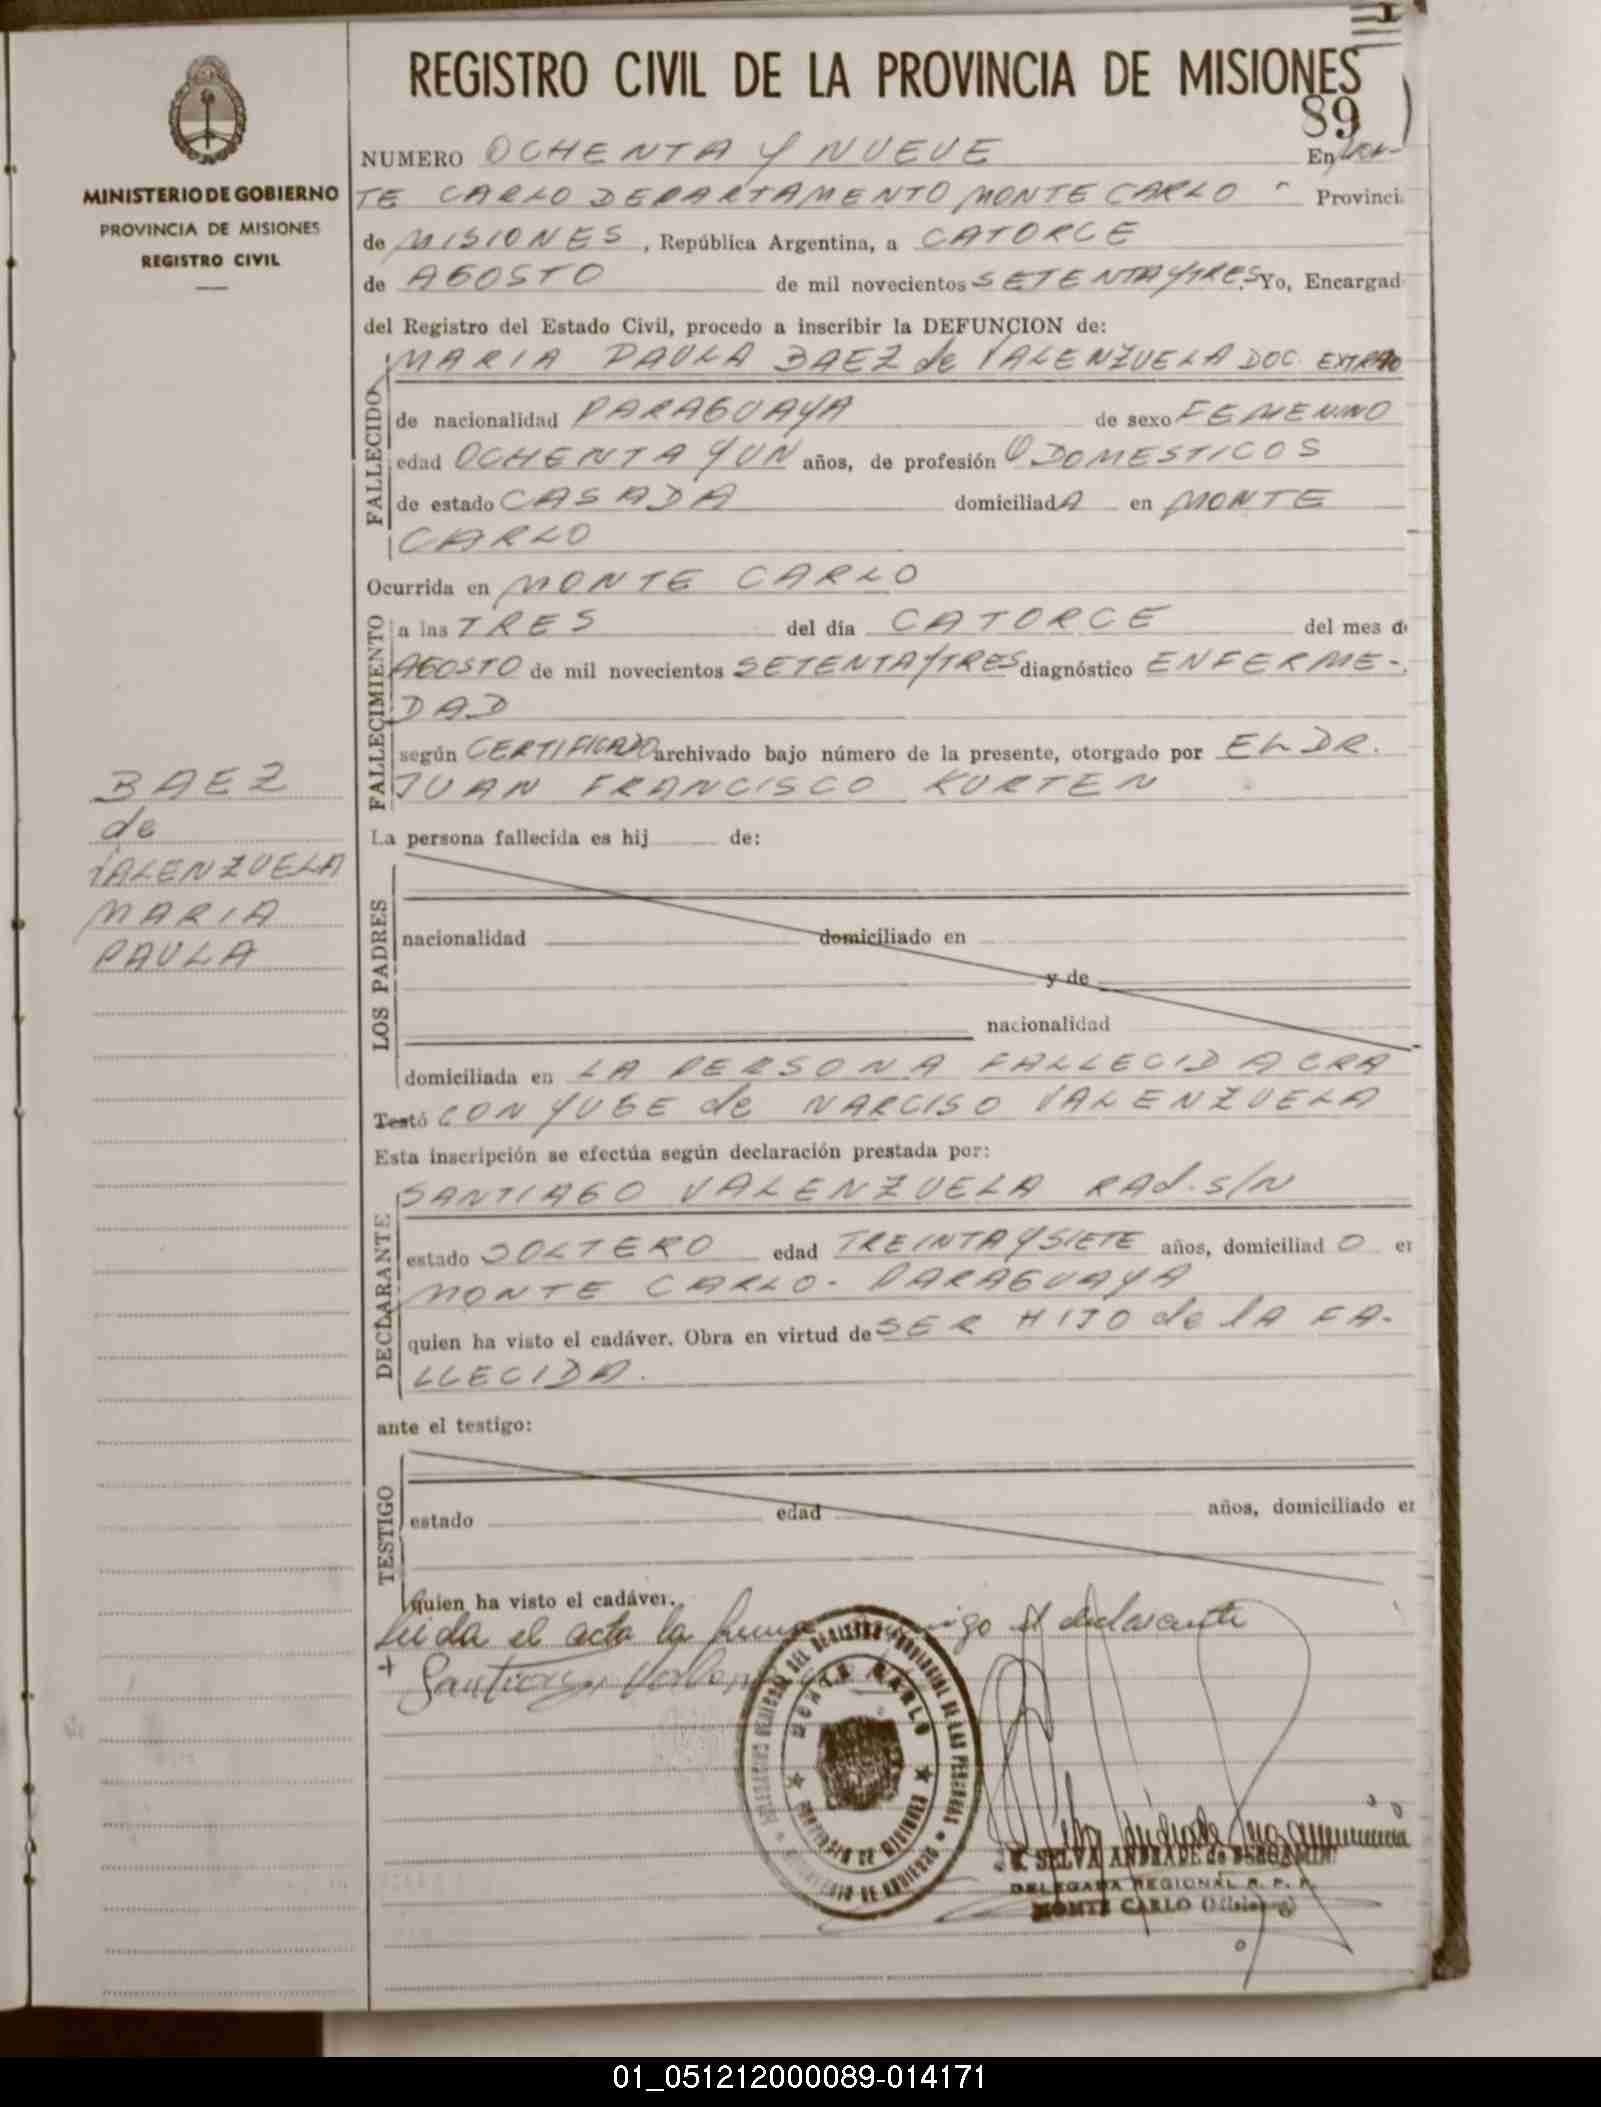 REGISTRO CIVIL DE LA PROVINCIA DE MISIONES
89
MINISTERIO DE GOBIERNO
PROVINCIA DE MISIONES
REGISTRO CIVIL
NUMERO OCHENTA Y NUEVE En MON-
TE CARLO DEPARTAMENTO MONTE CARLO Provinci
de MISIONES, República Argentina, a CATORCE
de AGOSTO de mil novecientos SETENTA Y TRES Yo, Encargad
del Registro del Estado Civil, procedo a inscribir la DEFUNCION de:
FALLECIDO
MARIA PAULA BAEZ de VALENZUELA DOC. EXTRAO
de nacionalidad PARAGUAYA de sexo FEMENINO
edad OCHENTA Y UN años, de profesión Q DOMESTICOS
de estado CASADA domiciliadA en MONTE
CARLO
Ocurrida en MONTE CARLO
FALLECIMIENTO
a las TRES del día CATORCE del mes d
AGOSTO de mil novecientos SETENTA Y TRES diagnóstico ENFERME-
DAD
según CERTIFICADO archivado bajo número de la presente, otorgado por EL DR.
JUAN FRANCISCO KURTEN
BAEZ
de
VALENZUELA
MARIA
PAULA
La persona fallecida es hij de:
LOS PADRES
nacionalidad domiciliado en
y de
nacionalidad
domiciliada en LA PERSONA FALLECIDA ERA
Testó CONYUGE de NARCISO VALENZUELA
Esta inscripción se efectúa según declaración prestada por:
DECLARANTE
SANTIAGO VALENZUELA RAd. S/N
estado SOLTERO edad TREINTA Y SIETE años, domiciliad O er
MONTE CARLO - PARAGUAYA
quien ha visto el cadáver. Obra en virtud de SER HIJO de lA FA-
LLECIDA.
ante el testigo:
TESTIGO
estado edad años, domiciliado er
quien ha visto el cadáver.
Leida el acta la el declarante
+ Santiago
MONTE CARLO
PROVINCIA DE MISIONES
SELVA ANDRADE de BENJAMIN
DELEGADA REGIONAL R. P. P.
MONTE CARLO (Misiones)
01_051212000089-014171